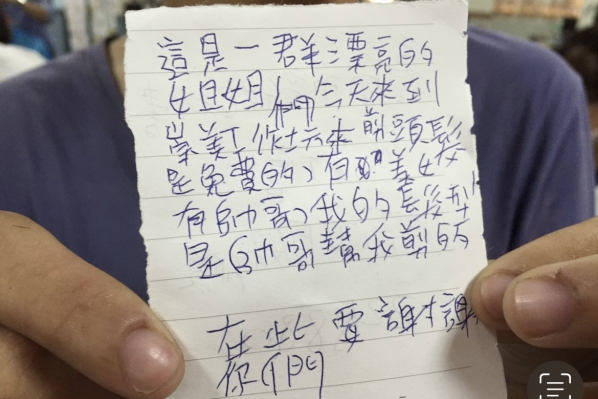 這是一群漂亮的
姐姐們今天來到
美 來剪頭髮
是免費的、有 美女
有帥哥、我的髮型
是帥哥幫我剪的
在此要謝謝
你們